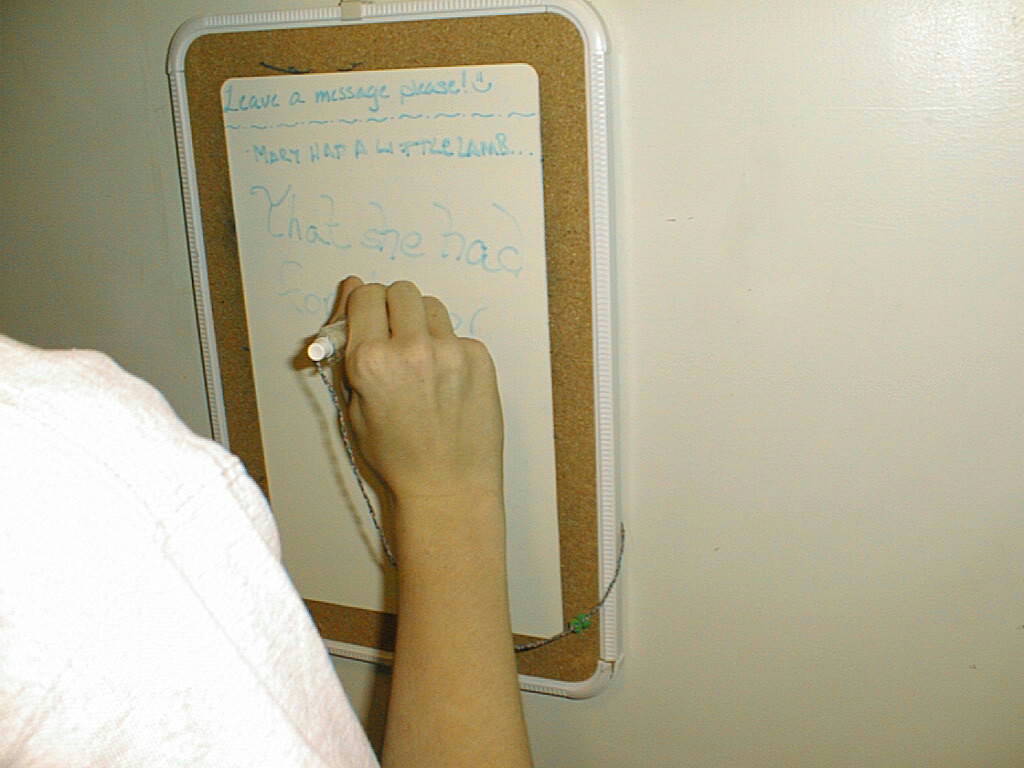 Leave a message please!
MARY HAD A LITTLE LAMB...
That she had
for